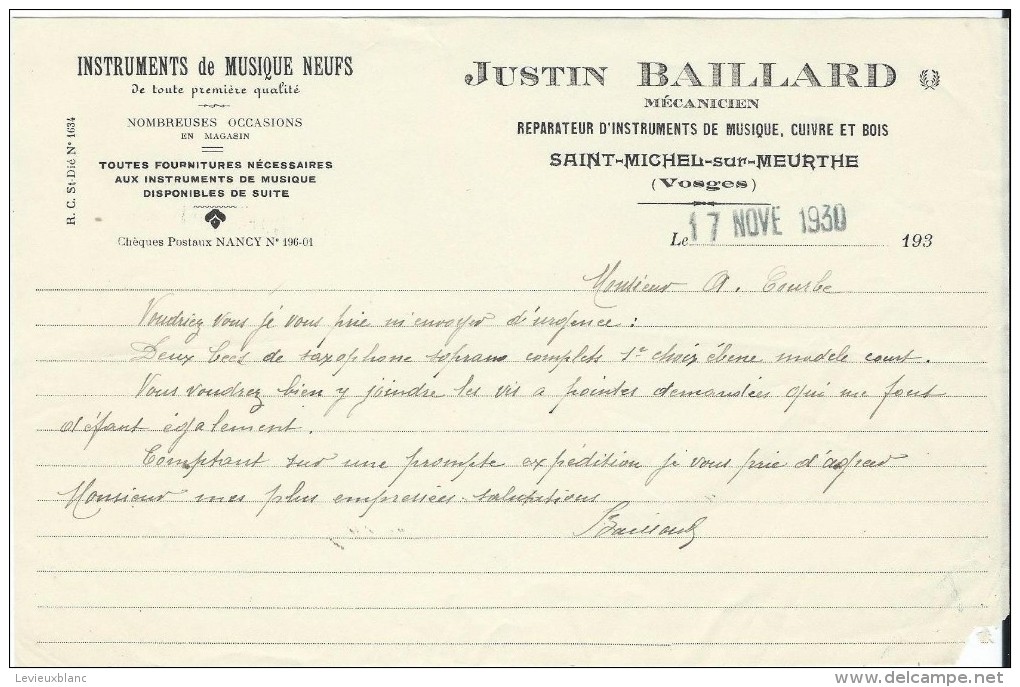 INSTRUMENTS de MUSIQUE NEUFS
de toute première qualité
NOMBREUSES OCCASIONS
EN MAGASIN
TOUTES FOURNITURES NÉCESSAIRES
AUX INSTRUMENTS DE MUSIQUE
DISPONIBLES DE SUITE
Chèques Postaux NANCY N° 196-01
R. C. St-Dié N° 1634
JUSTIN BAILLARD
MÉCANICIEN
REPARATEUR D'INSTRUMENTS DE MUSIQUE, CUIVRE ET BOIS
SAINT-MICHEL-sur-MEURTHE
(Vosges)
Le 17 NOVE 1930 193
Monsieur A. Courbe
Voudriez vous je vous prie m'envoyer d'urgence :
Deux becs de saxophone soprano complets 1er choix ébène modele court.
Vous voudrez bien y joindre les vis a pointes demandées qui me font
défaut également.
Comptant sur une prompte expédition je vous prie d'agréer
Monsieur mes plus empressées salutations
Baillard
Levieuxblanc
www.delcampe.net